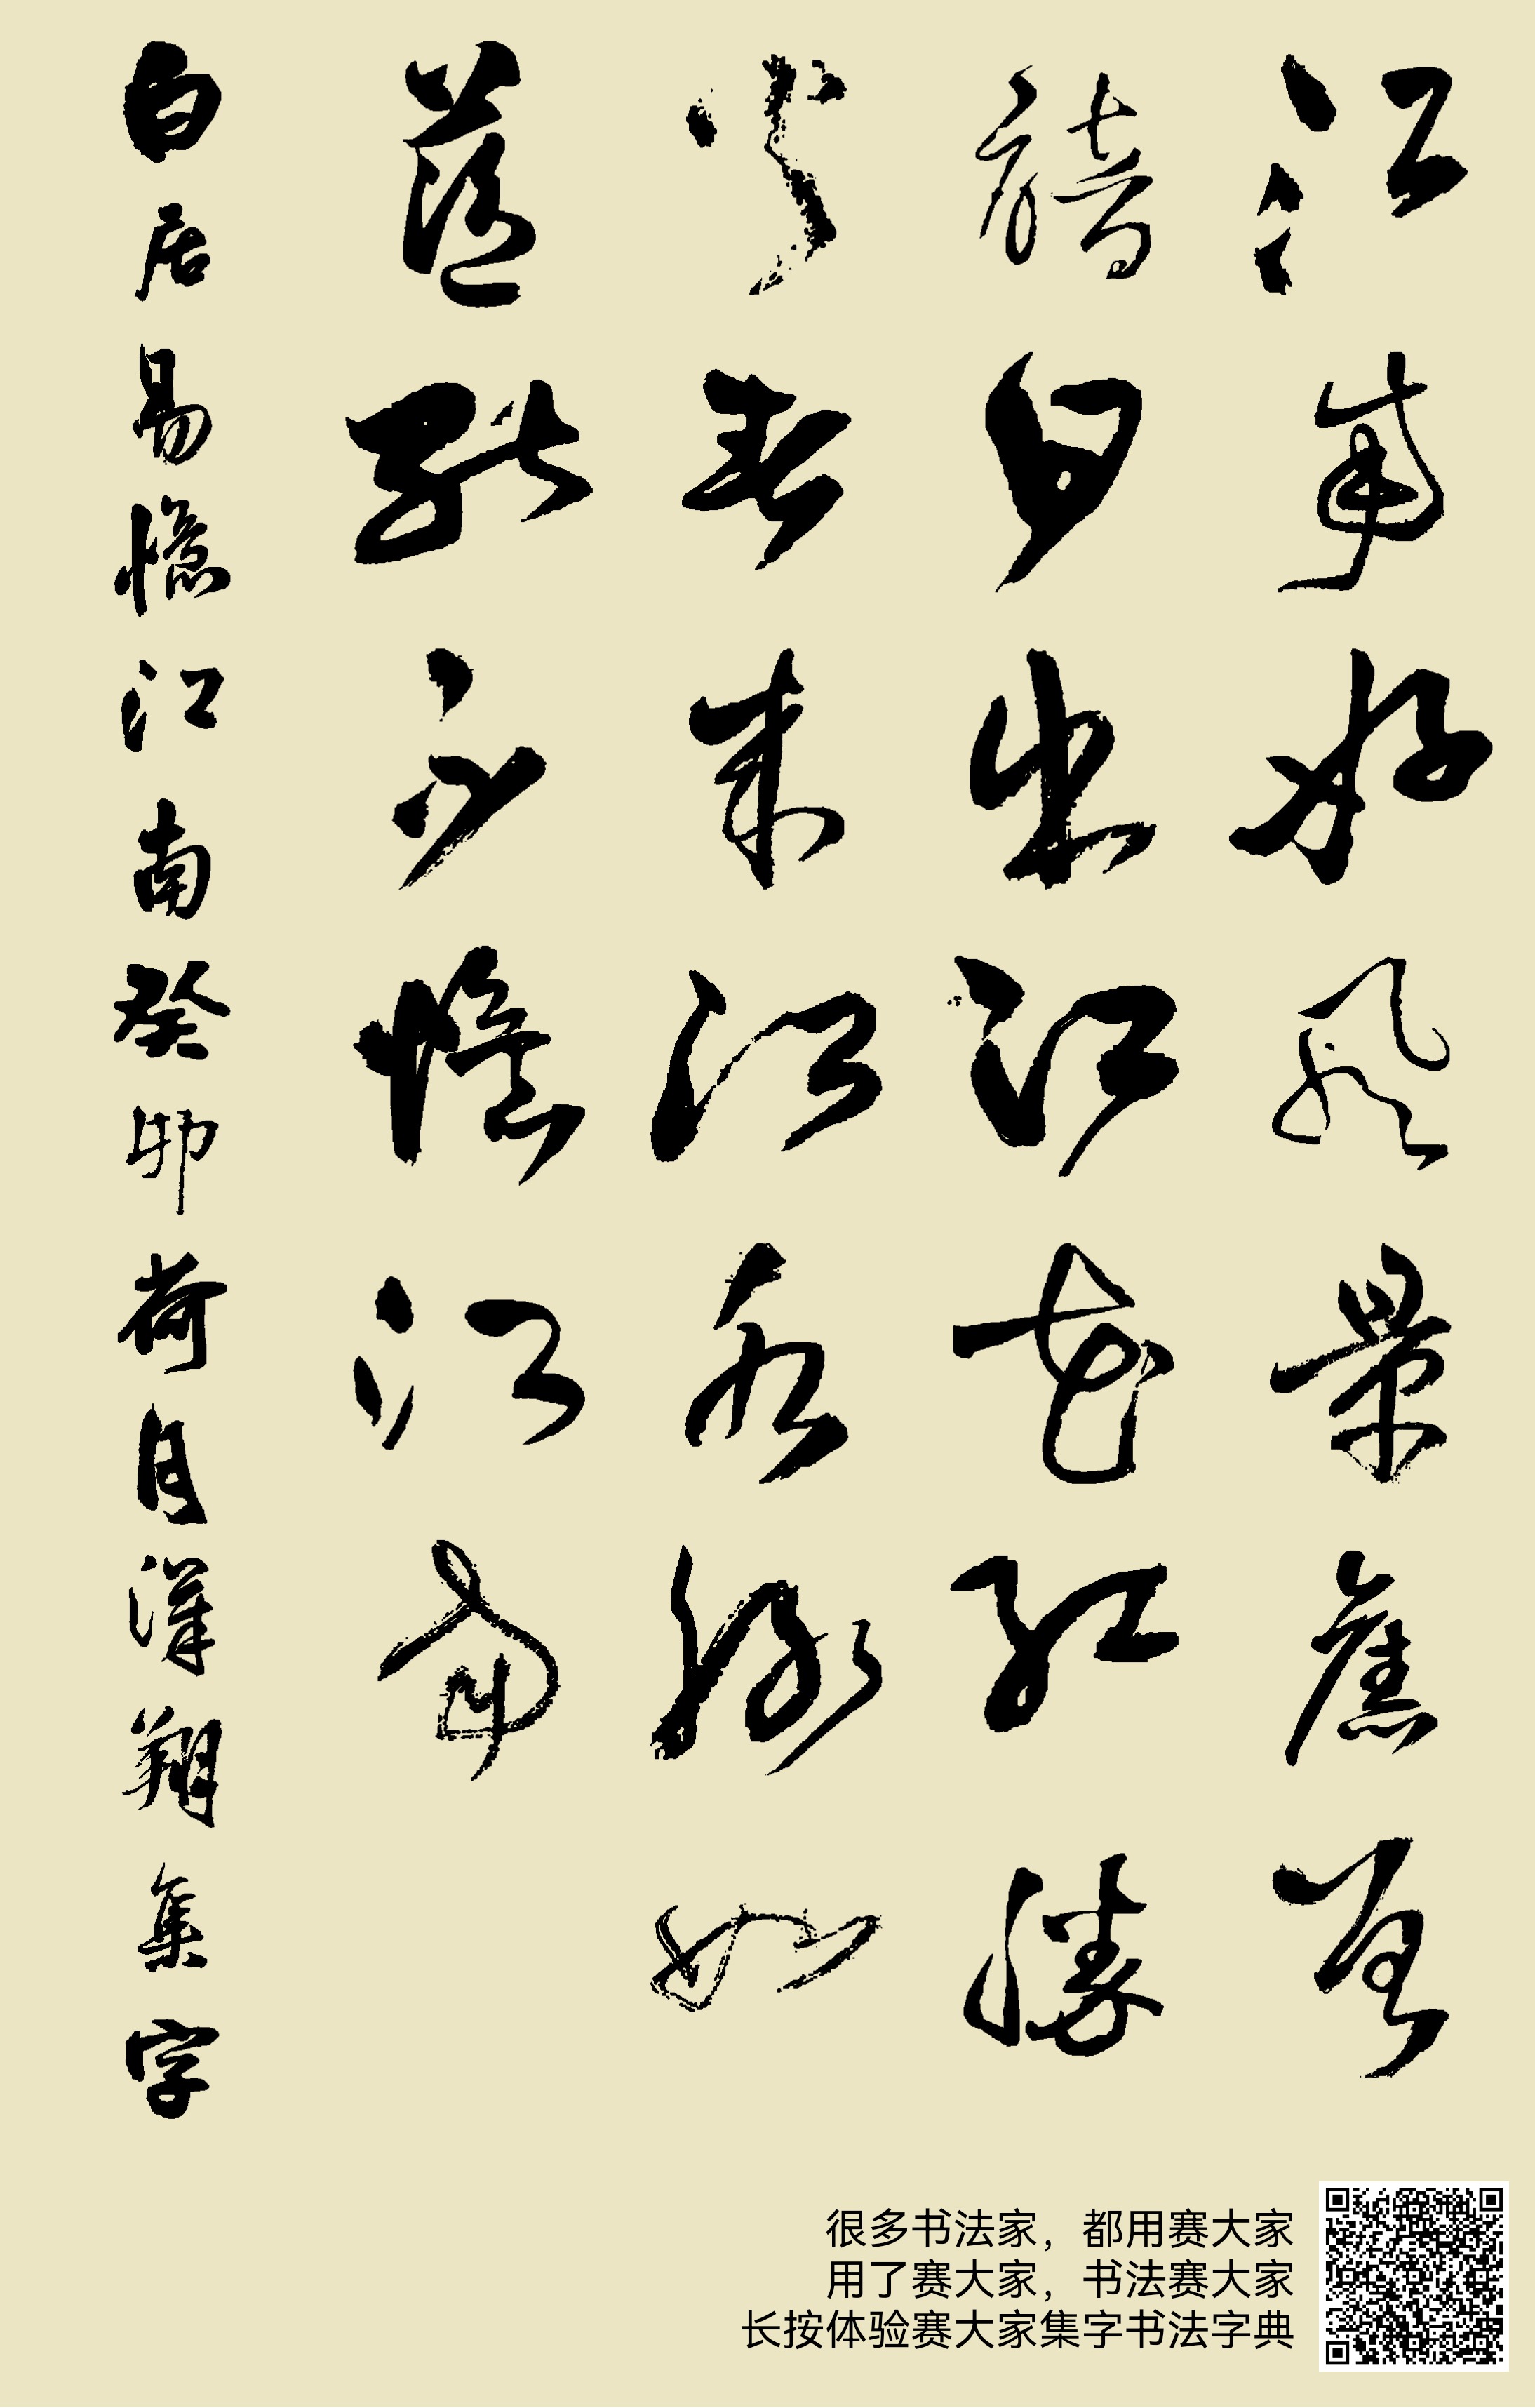 江南好风景舊曾
諳日出江花紅勝
火春来江水綠如
蓝能不憶江南
白居易憶江南癸卯荷月漢翔集字
很多书法家，都用赛大家
用了赛大家，书法赛大家
长按体验赛大家集字书法字典